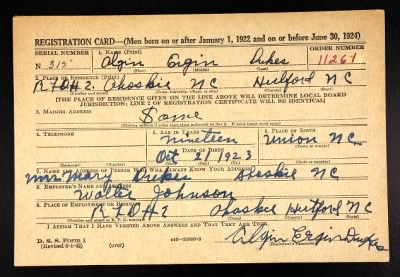 REGISTRATION CARD—(Men born on or after January 1, 1922 and on or before June 30, 1924)
SERIAL NUMBER 1. NAME (Print) ORDER NUMBER
N 315 Algin Ergin Dukes 11261
(First) (Middle) (Last)
2. PLACE OF RESIDENCE (Print)
RFD#2. Ahoskie Hutford N C
[THE PLACE OF RESIDENCE GIVEN ON THE LINE ABOVE WILL DETERMINE LOCAL BOARD
JURISDICTION; LINE 2 OF REGISTRATION CERTIFICATE WILL BE IDENTICAL]
3. MAILING ADDRESS
Same
4. TELEPHONE 5. AGE IN YEARS 6. PLACE OF BIRTH
nineteen Union N C
DATE OF BIRTH
Oct 21 1923
7. NAME AND ADDRESS OF PERSON WHO WILL ALWAYS KNOW YOUR ADDRESS
Mrs Mary Dukes Ahoskie N C
8. EMPLOYER'S NAME AND ADDRESS
Walter Johnson
9. PLACE OF EMPLOYMENT OR BUSINESS
RFD#2 Ahoskie Hutford N C
I AFFIRM THAT I HAVE VERIFIED ABOVE ANSWERS AND THAT THEY ARE TRUE.
D. S. S. Form 1
(over)
Algin Ergin Dukes